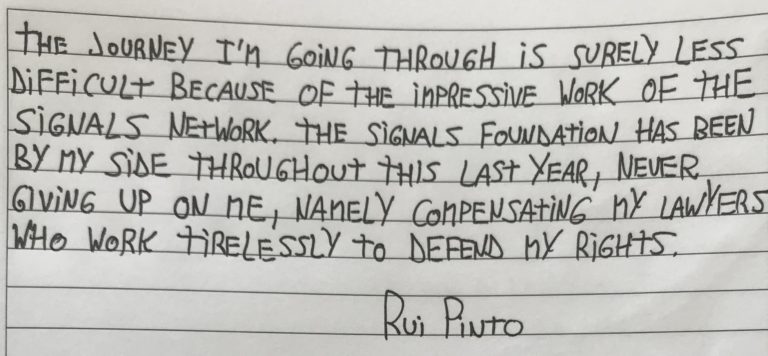 THE JOURNEY I'M GOING THROUGH IS SURELY LESS
DIFFICULT BECAUSE OF THE IMPRESSIVE WORK OF THE
SIGNALS NETWORK. THE SIGNALS FOUNDATION HAS BEEN
BY MY SIDE THROUGHOUT THIS LAST YEAR, NEVER
GIVING UP ON ME, NAMELY COMPENSATING MY LAWYERS
WHO WORK TIRELESSLY TO DEFEND MY RIGHTS.
Rui Pinto